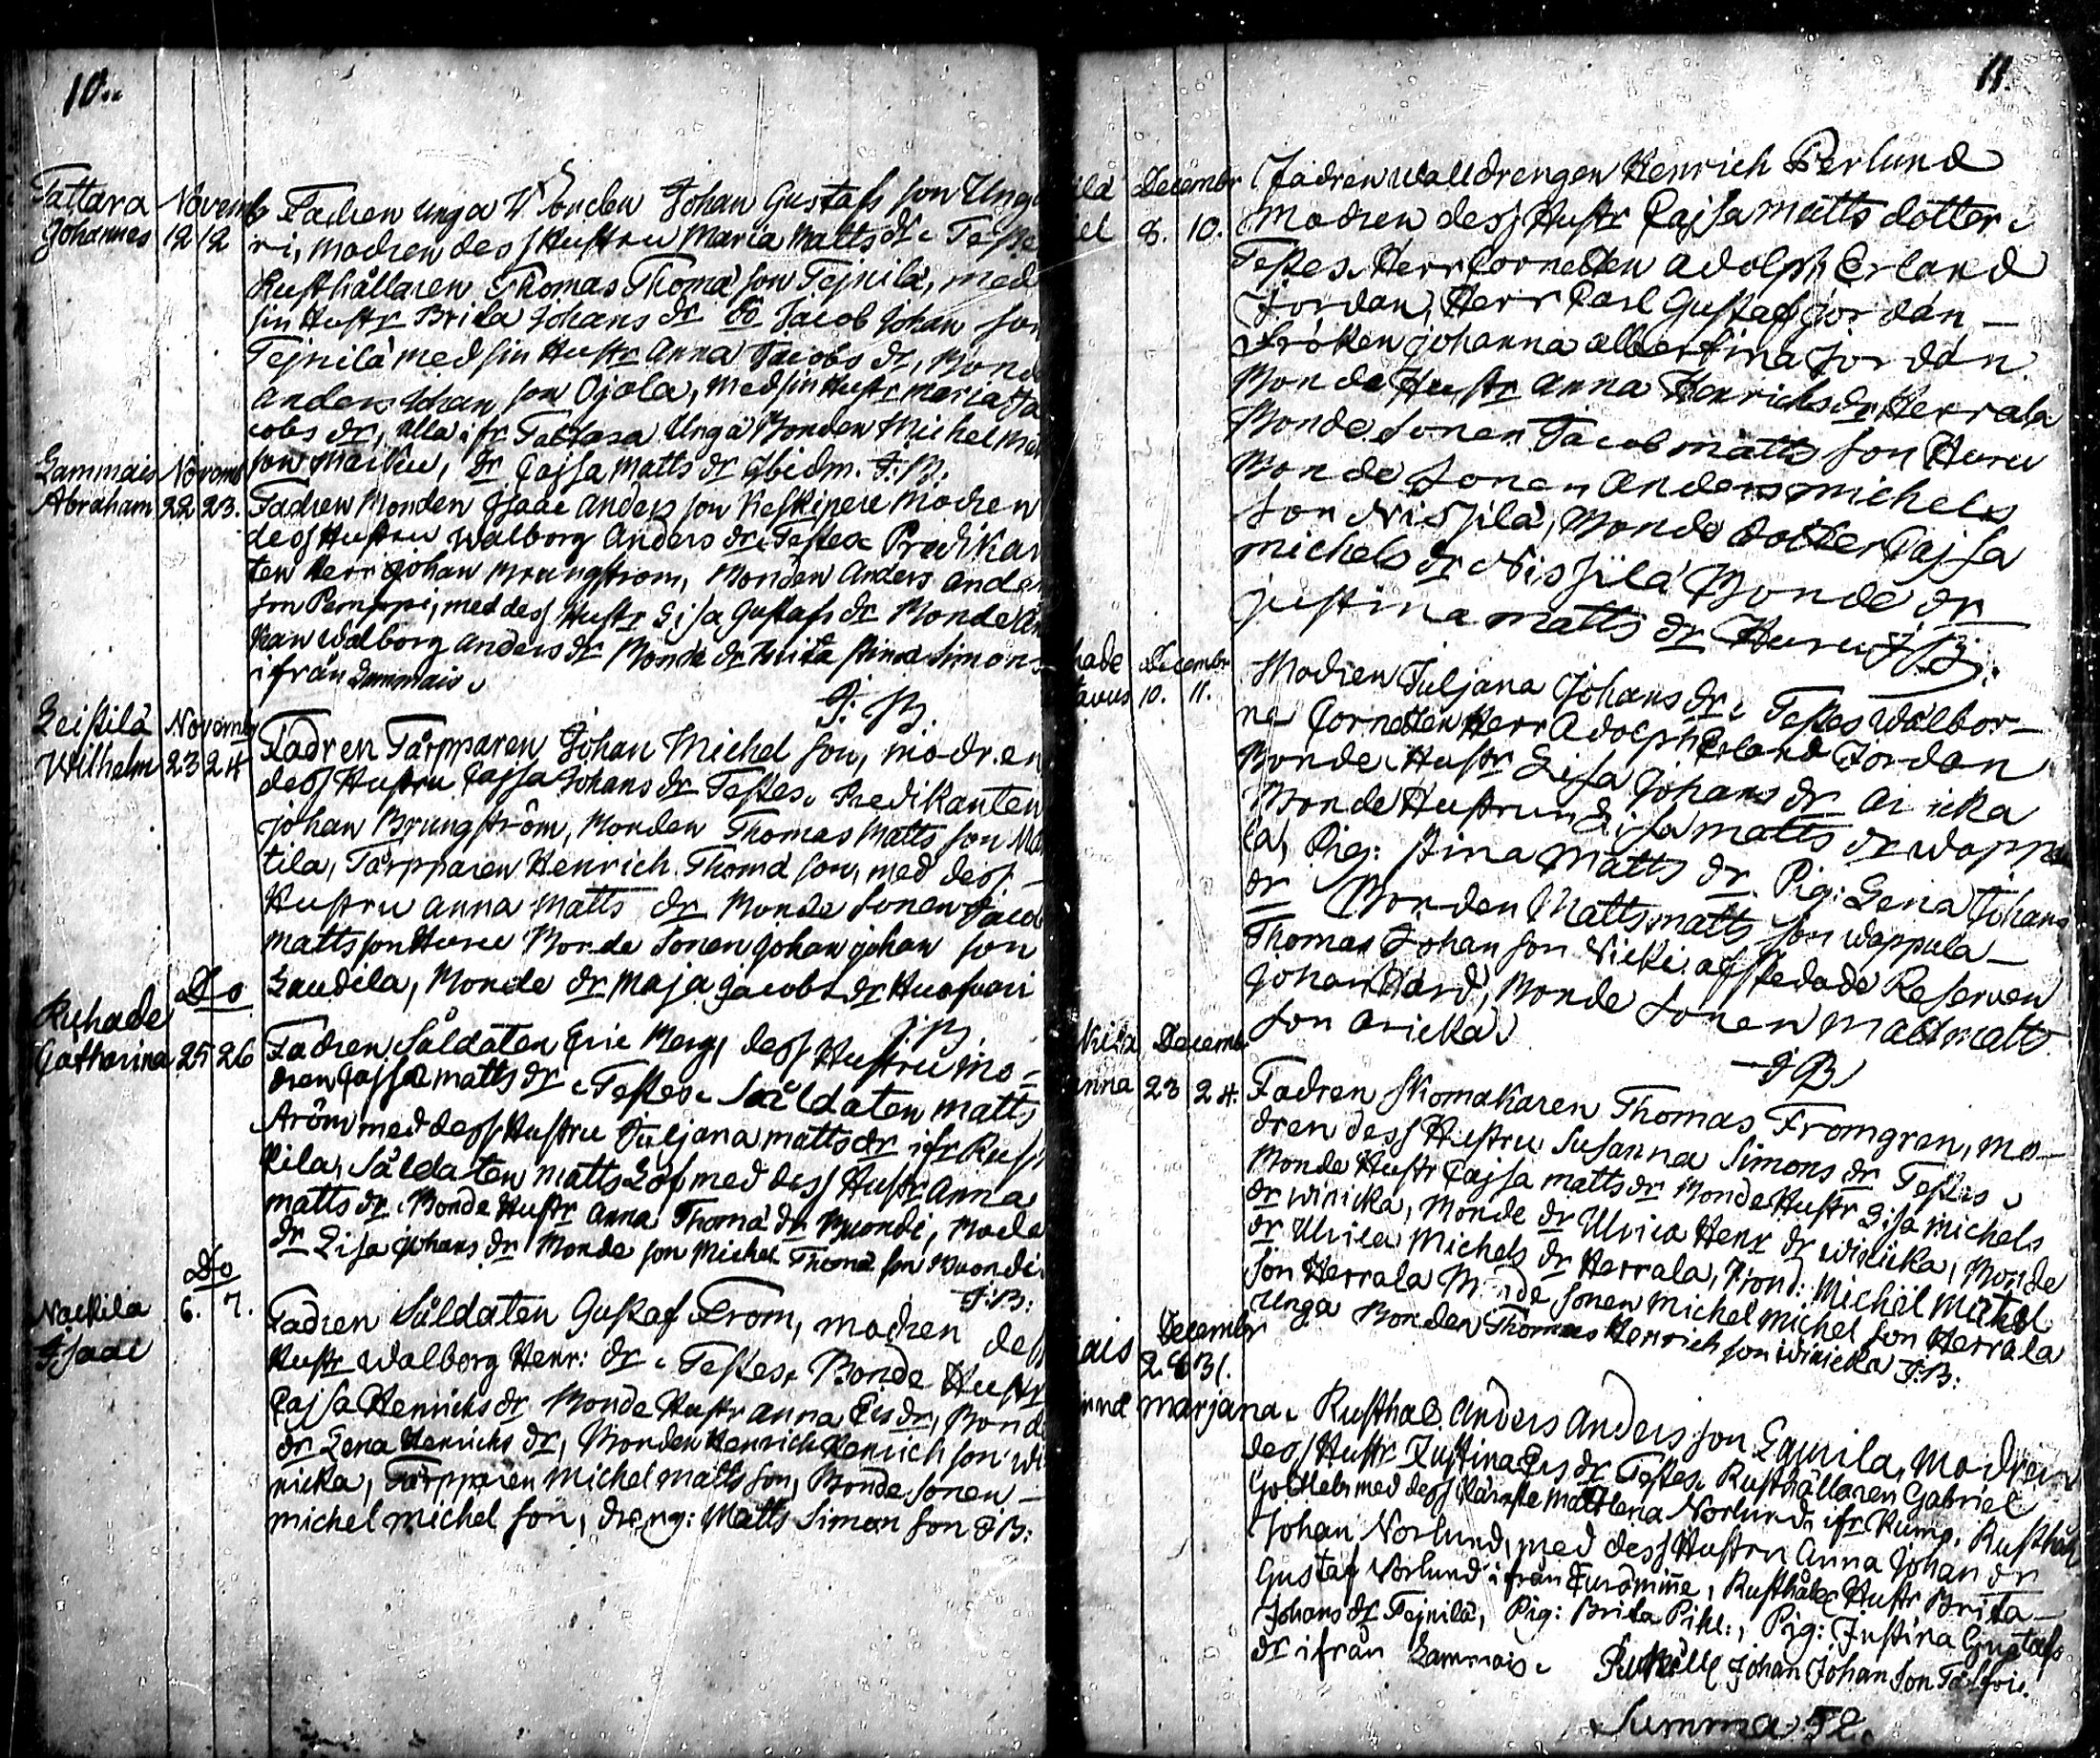 10.
Tattara Novemb Fadren unga Bonden Johan Gustafs son Unga
Johannes 12 12 ri, modren dess Hustru Maria Matts dr. Testes
Rusthållaren Thomas Thomä son Tejnilä, med
sin Hustr Brita Johans dr Do Jacob Johan son
Tejnilä med sin Hustr Anna Jacobs dr, Bond
Anders Johan son Ojala, med sin Hustr Maria Ja
cobs dr, alla ifr Tattara Unga Bonden Michel Mat
son Marku, dr Cajsa Matts dr Ibidm. J: B:
Lammais Novemb
Abraham 22 23. Fadren Bonden Isaac Anders son Keskipere Modren
dess Hustru Walborg Anders dr. Testes Predikan
ten Herr Johan Brungström, Bonden Anders Anders
son Pemppi, med dess Hustr Lisa Gustafs dr Bonde Än
kan Walborg Anders dr Bonde dr Brita Stina Simons
ifrån Lammais.
J: B.
Leistilä Novemb
Wilhelm 23 24 Fadren Tårpparen Johan Michel son, modren
dess Hustru Cajsa Johans dr Testes. Predikanten
Johan Brungström, Bonden Thomas Matts son
tila, Tårpparen Henrich Thomä son, med dess
Hustru Anna Matts dr Bonde Sonen Jacob
Matts son Huru Bonde Sonen Johan Johan son
Laudila, Bonde dr Maja Jacobs dr
J: B.
Ruhade Do
Catharina 25 26 Fadren Såldaten Eric Berg, dess Hustru mo-
dren Cajsa Matts dr. Testes. Såldaten Matts
Ström med dess Hustru Juljana Matts dr ifr
kila, Såldaten Matts Löf med dess Hustr Anna
Matts dr. Bonde Hustr Anna Thomä dr
dr Lisa Johans dr Bonde son Michel Thomä son
J: B:
Nackila Do
Isaac 6. 7. Fadren Såldaten Gustaf From, modren dess
Hustr Walborg Henr: dr. Testes. Bonde Hustr
Cajsa Henrichs dr Bonde Hustr Anna Ers dr, Bond
dr Lena Henrichs dr, Bonden Henrich Henrich son Wi
nicka, Tårpparen Michel Matts son, Bonde sonen
Michel Michel son, dreng: Matts Simon son J: B:
11.
Decembr Fadren Walldrengen Henrich Berlund
8. 10. Modren dess Hustr Cajsa Matts dotter.
Testes. Herr Cornetten Adolph Erland
Jordan, Herr Carl Gustaf Jordan
Fröken Johanna Albertina Jordan
Bonde Hustr Anna Henrichs dr Herrala
Bonde Sonen Jacob Matts son Huru
Bonde Sonen Anders Michels
son Nissilä, Bonde dotter Cajsa
Michels dr Nissilä Bonde dr
Justina Matts dr Huru J: B:
hade Decembr
tavus 10. 11. Modren Juljana Johans dr. Testes Wälbor-
ne Cornetten Herr Adolph Erland Jordan
Bonde Hustr Lisa Johans dr
Bonde Hustrun Lisa Matts dr Wappu
la, Pig: Stina Matts dr Pig: Lena Johans
dr Bonden Matts Matts son Wappula
Thomas Johan son Nicki afskedade Reserven
Johan Hård, Bonde Sonen Matts Matts
son Aricka.
J: B.
kila Decemb
anna 23 24. Fadren Skomakaren Thomas Fromgren, mo-
dren dess Hustru Susanna Simons dr Testes.
Bonde Hustr Cajsa Matts dr Bonde Hustr Lisa Michels
dr Winicka, Bonde dr Ulrica Henr dr Winicka, Bonde
dr Ulrica Michels dr Herrala, Bond: Michel Michel
son Herrala Bonde sonen Michel Michel son Herrala
Unga Bonden Thomas Henrich son Winicka J: B:
ais Decembr
31.
Marjana. Rusthål. Anders Anders son Eqvila, Modren
dess Hustr Justina Ers dr Testes. Rusthållaren Gabriel
Gottleb med dess Käreste Norlund, ifr Kumo. Rusthål
Johan Norlund, med dess Hustru Anna Johan dr
Gustaf Norlund ifrån Euraminne, Rusthåll Hustr Brita
Johans dr Tejnilä, Pig: Brita Pihl:, Pig: Justina Gustafs
dr ifrån Lammais. Rusthåll Johan Johan son
Summa: 52.